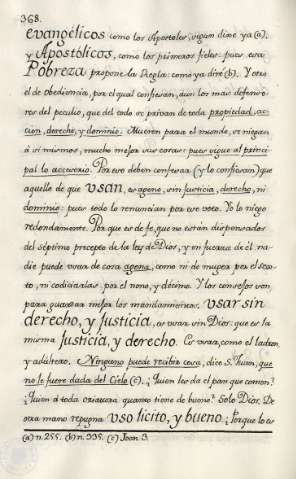 368.
evangélicos como los Apostoles, sigun dixe ya (a).
y Apostólicos, como los primeros fieles: pues esta
Póbreza propone la Regla: como ya dixe (b). Y otro
el de obediencia, por el qual confiesan, aun los mas defenso-
res del peculio, que del todo se privan de toda propiedad, ac-
cion, derecho, y dominio. Mueren para el mundo, se niegan
á si mismos, mucho mejor sus cosas: pues sigue al princi-
pal lo accesorio. Por eso deben confesar (y lo confiesan) que
aquello de que usan, es ageno, sin justicia, derecho, ni
dominio: pues todo lo renuncian por ese voto. Yo lo niego
redondamente. Por que es de fe, que no están dispensados
del séptimo precepto de la ley de Dios, y en fuerza de él na-
die puede usar de cosa agena, como ni de muger por el sex-
to, ni codiciarlas por el nono, y décimo. Y los consejos son
para guardar mejor los mandamientos. Usar sin
derecho, y justicia, es usar sin Dios: que es la
misma justicia, y derecho. Es usar, como el ladron,
y adultero. Ninguno puede recibir cosa, dice S. Juan, que
no le fuere dada del Cielo (c). ¿Quien les da el pan que comen?
¿Quien á toda criatura quanto tiene de bueno? Solo Dios. De
otra mano repugna uso licito, y bueno. ¿Porque lo es
(a) n. 255. (b) n. 335. (c) Joan 3.